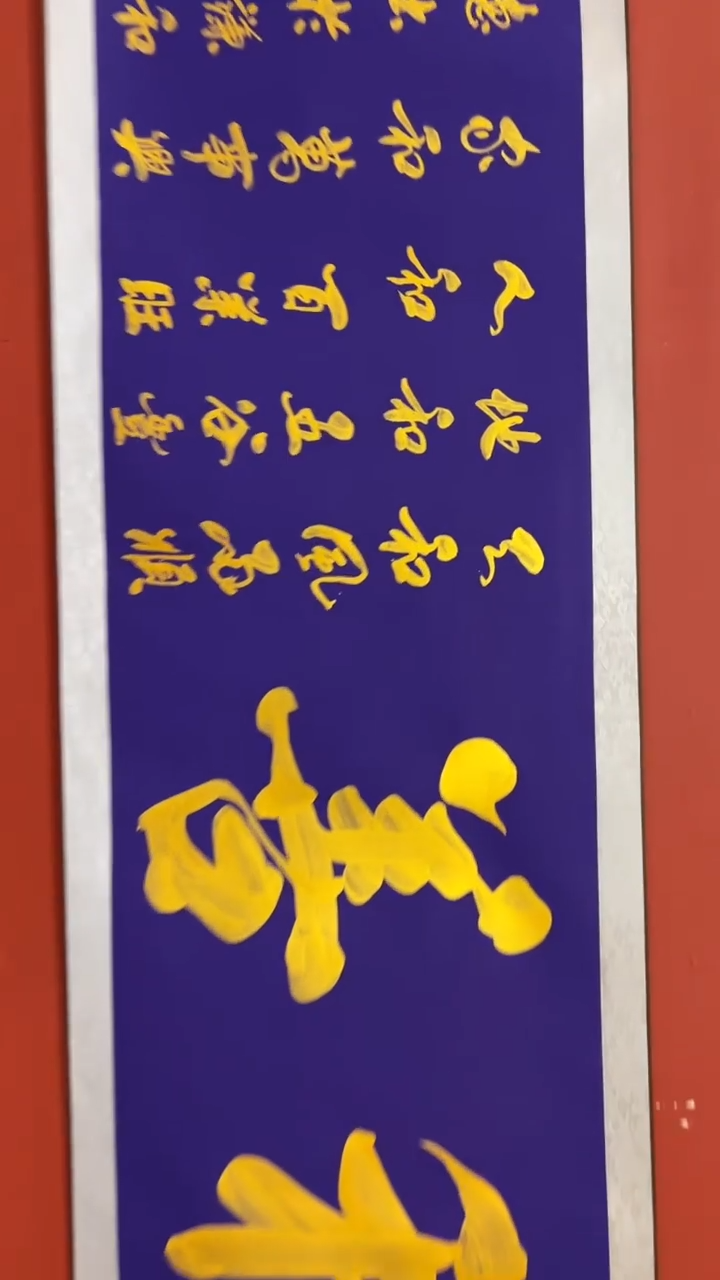 善
天和風雨顺
地和五谷豐
人和百業旺
家和萬事興